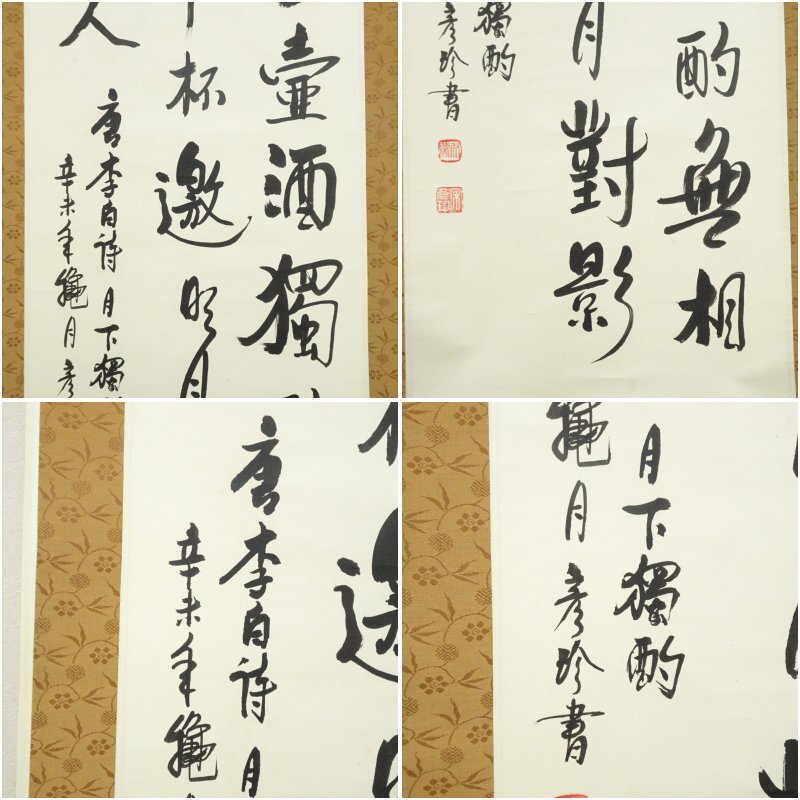 壺酒獨
杯邀明月
人
唐李白詩 月下獨
辛未年 月 彥
酌無相
月對影
獨酌
彥珍書
唐李白詩 月
辛未年
邀
月下獨酌
月 彥珍書